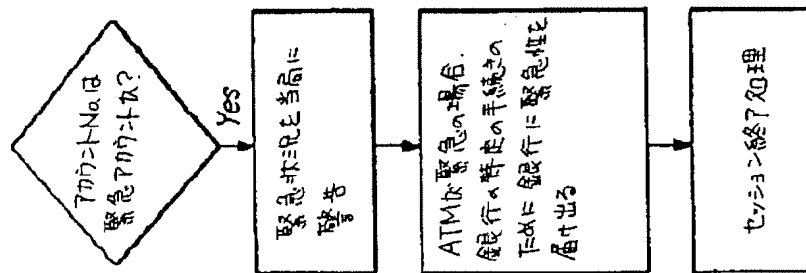 アカウントNo.は
緊急アカウントか?
Yes
緊急状況を当局に
警告
ATMが緊急の場合、
銀行の特定の手続きの
ために銀行に緊急性を
届け出る
セッション終了処理